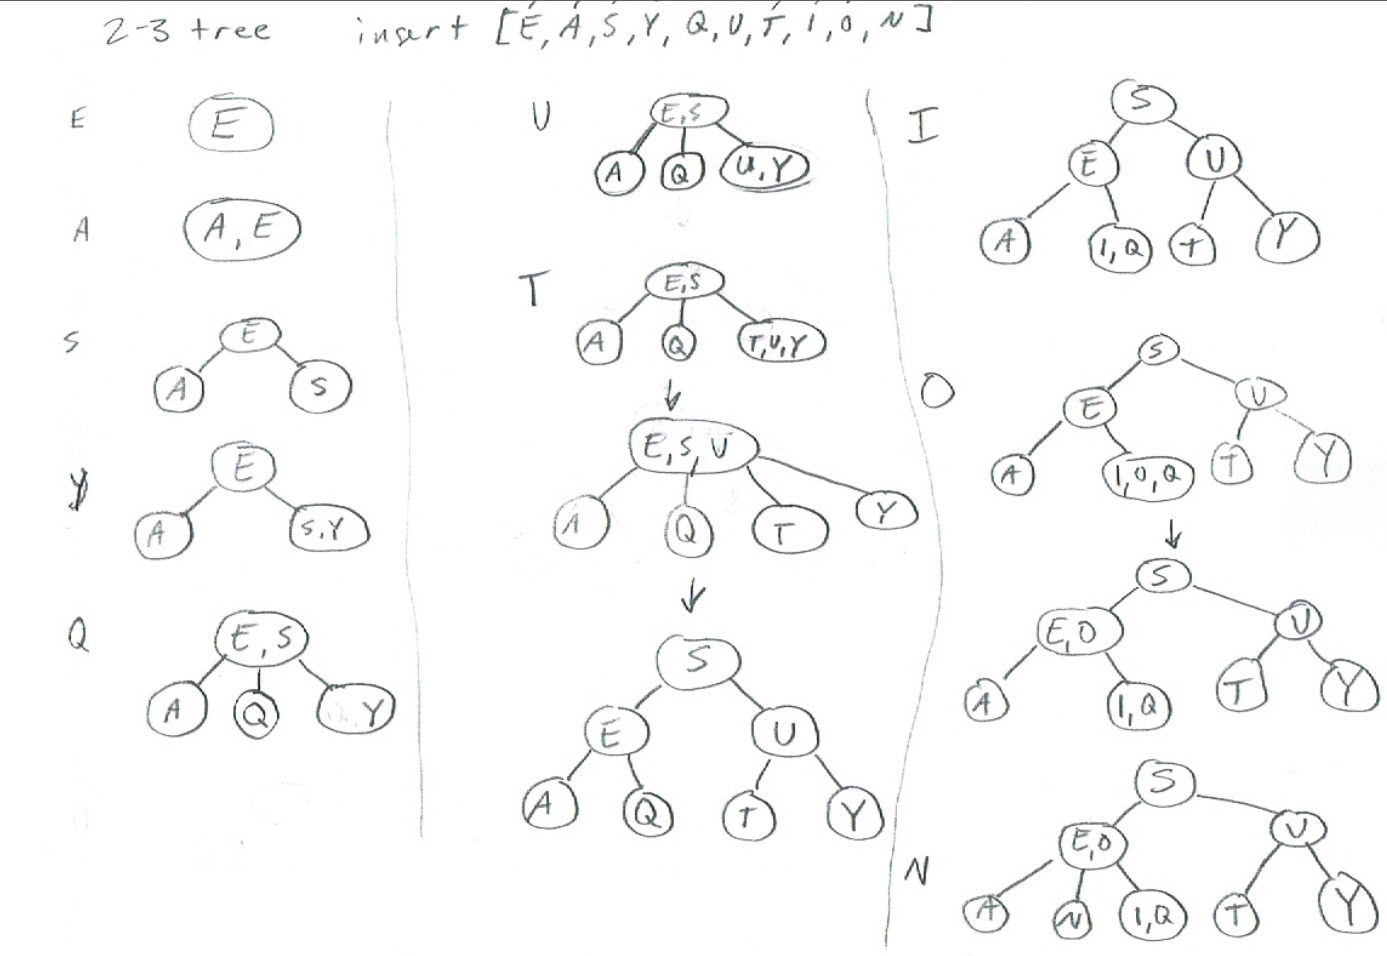 2-3 tree insert [E, A, S, Y, Q, U, T, I, O, N]
E
E
A
A, E
S
E
A S
Y
E
A S,Y
Q
E, S
A Q Y
U
E,S
A Q U,Y
T
E,S
A Q T,U,Y
E, S, U
A Q T Y
S
E U
A Q T Y
I
S
E U
A I,Q T Y
O
S
E U
A I,O,Q T Y
S
E,O U
A I,Q T Y
N
S
E,O U
A N I,Q T Y